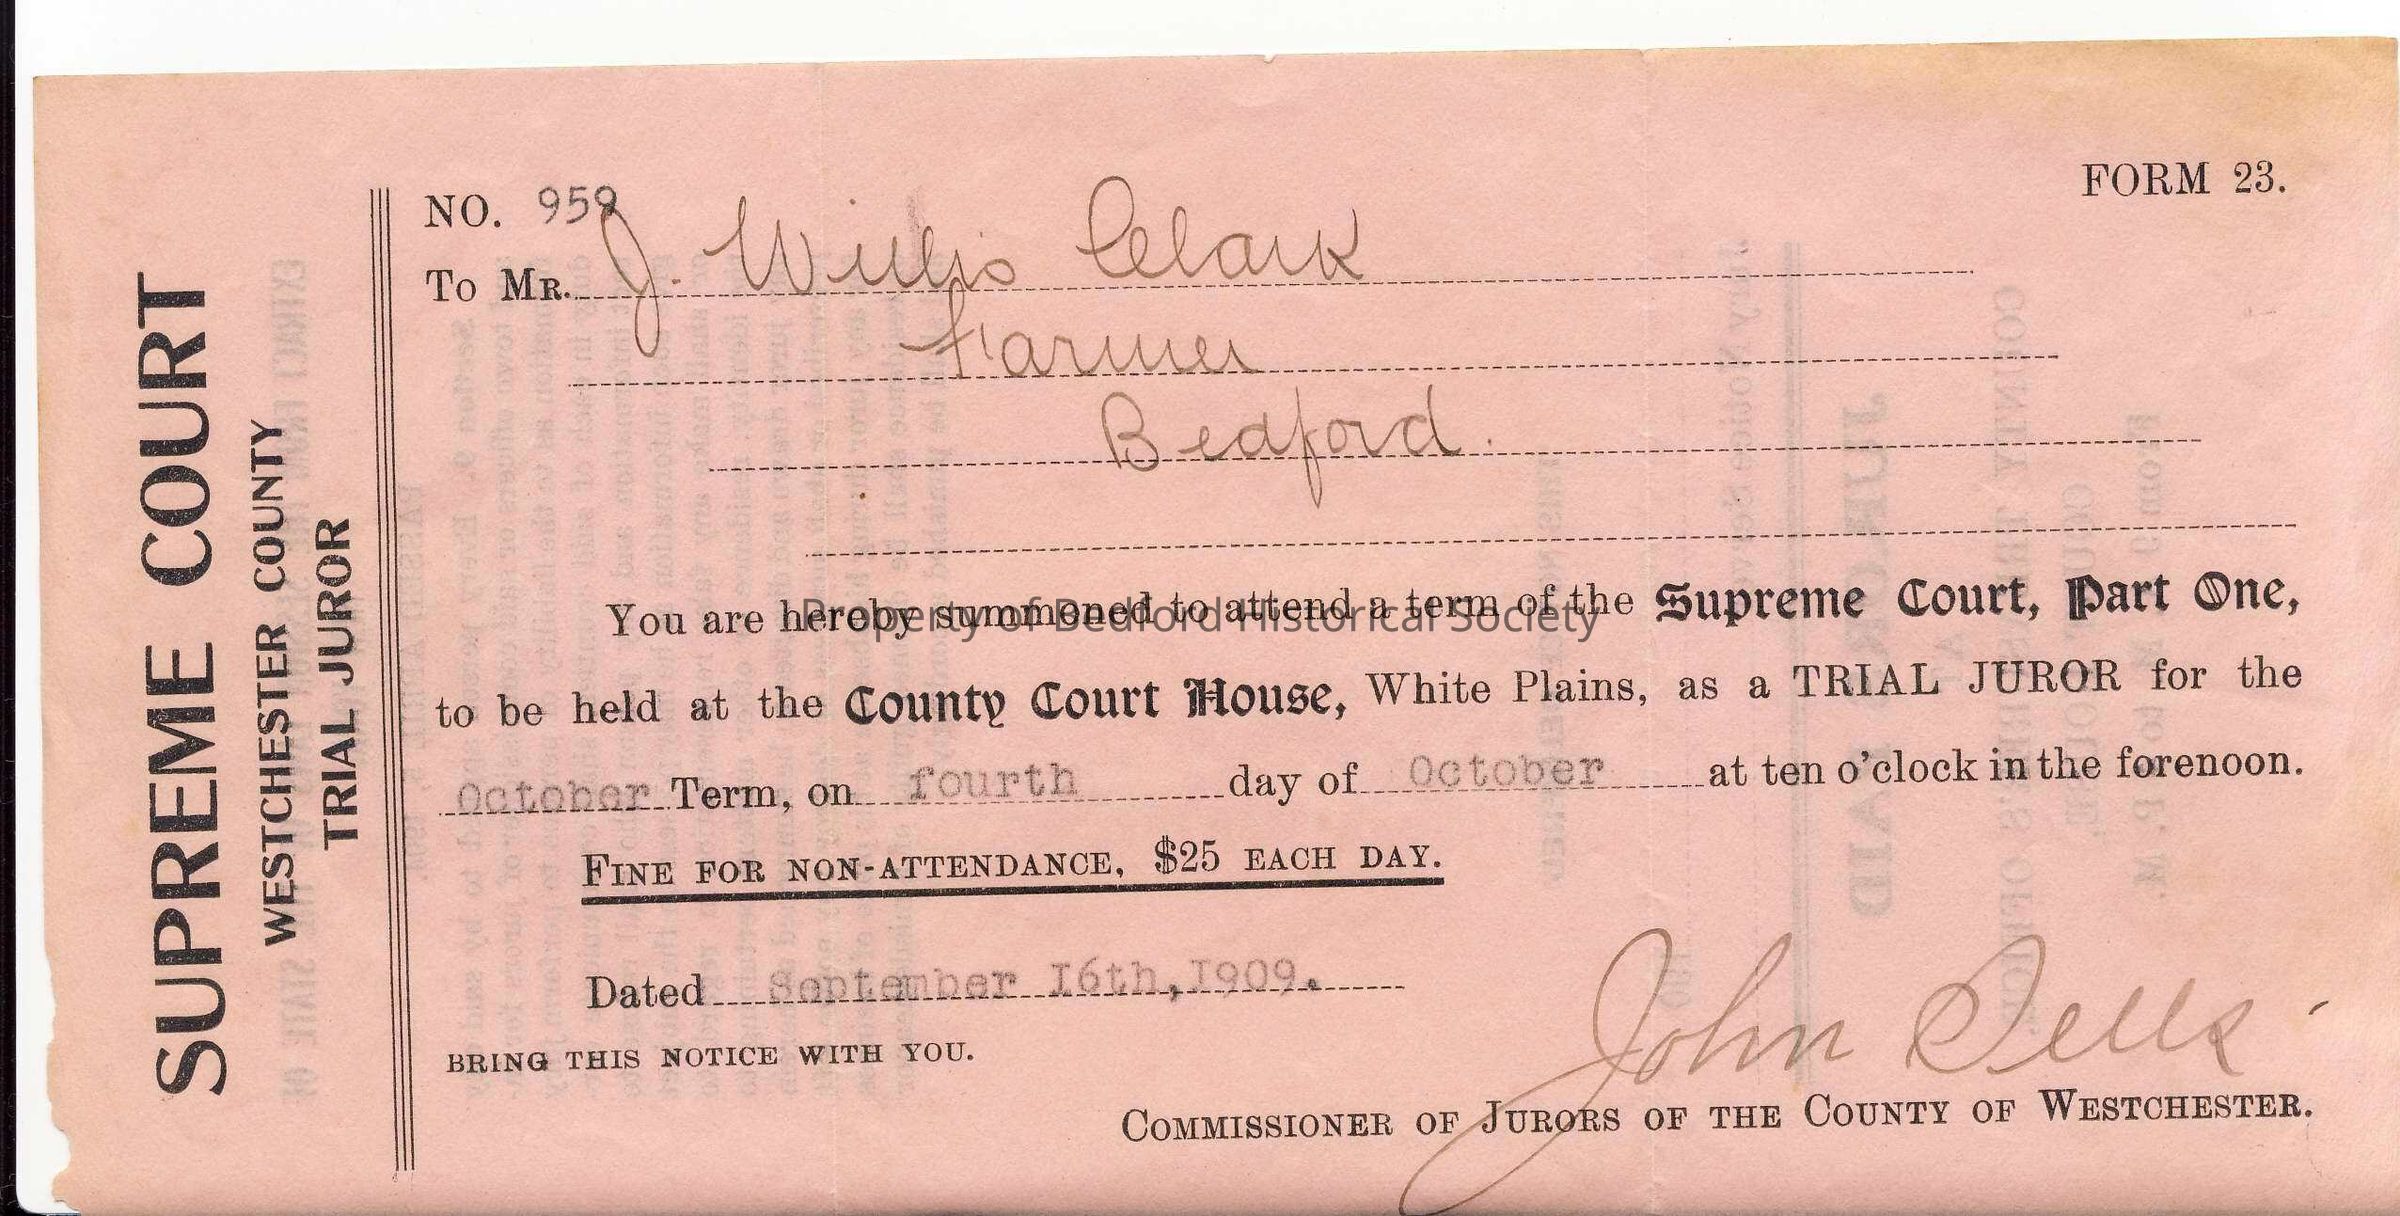 SUPREME COURT
WESTCHESTER COUNTY
TRIAL JUROR
FORM 23.
NO. 959
To Mr. J. Willis Clark
Farmer
Bedford.
You are hereby summoned to attend a term of the Supreme Court, Part One,
Property of Bedford Historical Society
to be held at the County Court House, White Plains, as a TRIAL JUROR for the
October Term, on fourth day of October at ten o'clock in the forenoon.
FINE FOR NON-ATTENDANCE, $25 EACH DAY.
Dated September 16th, 1909.
BRING THIS NOTICE WITH YOU.
John
COMMISSIONER OF JURORS OF THE COUNTY OF WESTCHESTER.